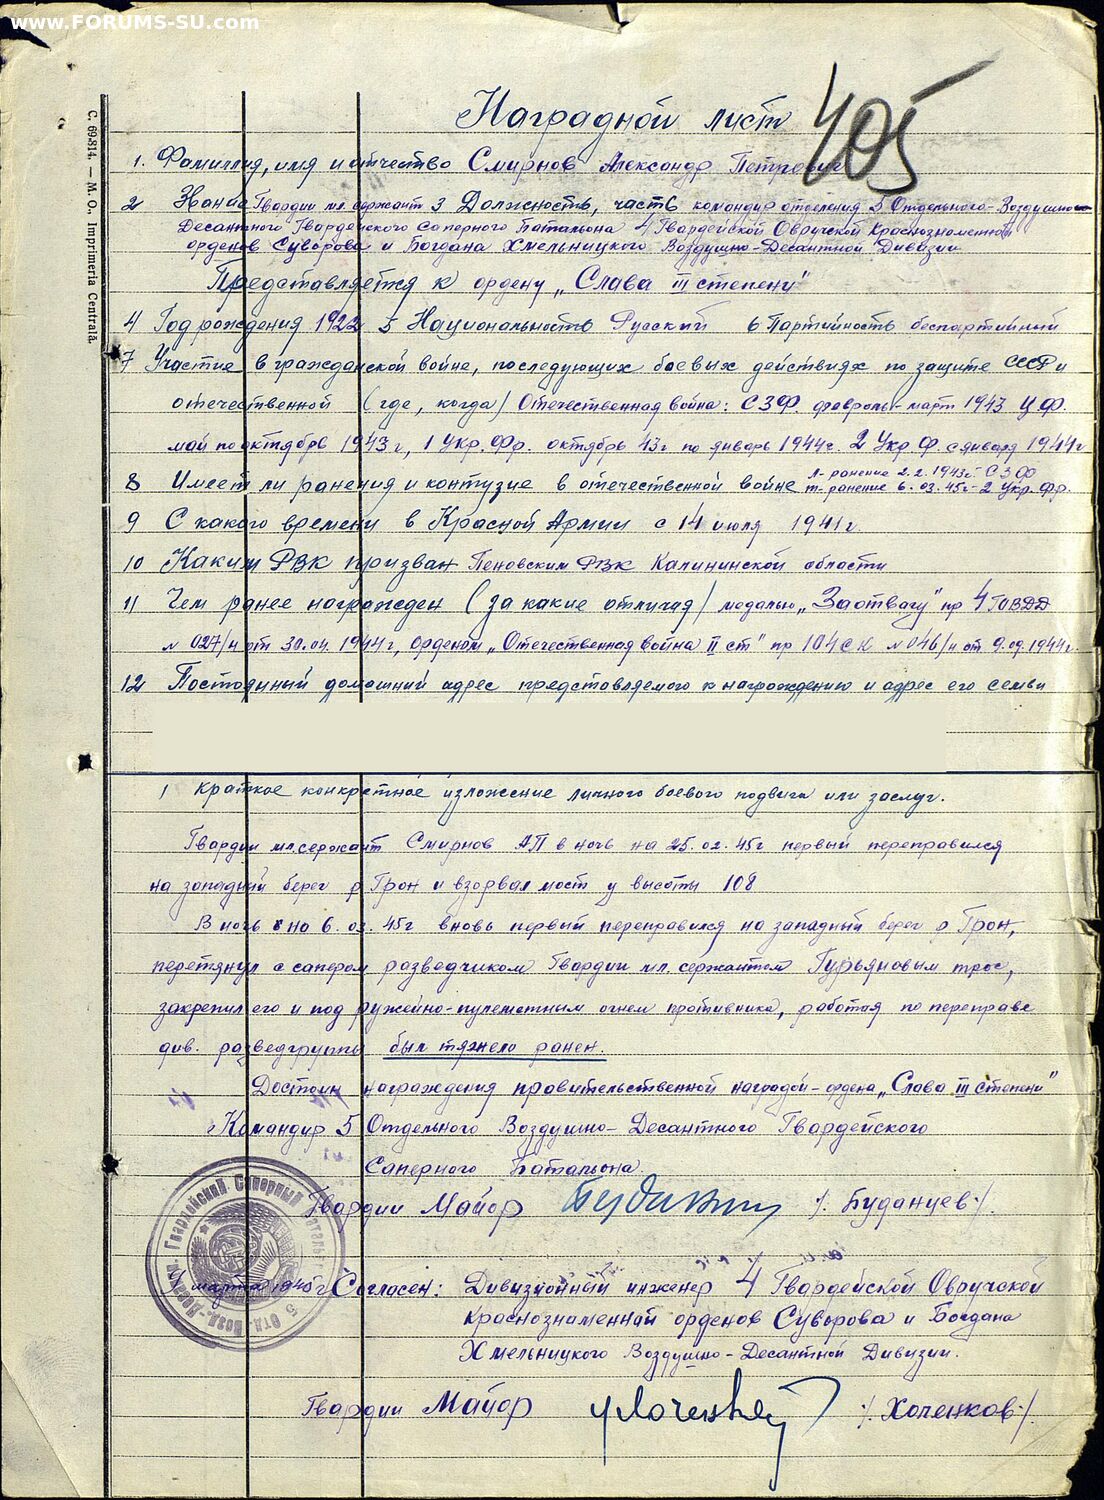 www.FORUMS-SU.com
С. 69.814. — M. O., Imprimeria Centrală.
Наградной лист
405
1. Фамилия, имя и отчество Смирнов Александр Петрович
2 Звание Гвардии мл. сержант 3 Должность, часть командир отделения 5 Отдельного-Воздушно-
Десантного Гвардейского Саперного Батальона 4 Гвардейской Овручской Краснознаменной
орденов Суворова и Богдана Хмельницкого Воздушно-Десантной Дивизии
Представляется к ордену „Слава III степени"
4 Год рождения 1922 5 Национальность Русский 6 Партийность беспартийный
7 Участие в гражданской войне, последующих боевых действиях по защите СССР и
отечественной (где, когда) Отечественная война: СЗФ. февраль-март 1943 Ц.Ф.
май по октябрь 1943 г, 1 Укр. Фр. октябрь 43г по январь 1944г. 2 Укр. Ф. с января 1944г
8 Имеет ли ранения и контузие в отечественной войне л-ранение 2.2.1943г. СЗФ
т-ранение 6.03.45г-2 Укр. Фр.
9 С какого времени в Красной Армии с 14 июля 1941г.
10 Каким РВК призван Пеновским РВК Калининской области
11 Чем ранее награжден (за какие отличая) медалью „За отвагу" пр 4 ГВДД
№ 027/н от 30.04.1944г, Орденом „Отечественная война II ст" пр 104 СК № 046/н от 9.09.1944г.
12 Постояный домашний адрес представляемого к награждению и адрес его семьи
1 Краткое конкретное изложение личного боевого подвига или заслуг.
Гвардии мл. сержант Смирнов АП в ночь на 25.02.45г первый переправился
на западный берег р Грон и взорвал мост у высоты 108
В ночь на 6.03.45г вновь первый переправился на западный берег р Грон,
перетянул с сапером разведчиком Гвардии мл. сержантом Гурьяновым трос,
закрепил его и под ружейно-пулеметным огнем противника, работая по переправе
див. разведгруппы был тяжело ранен.
Достоин награждения правительственной наградой-ордена „Слава III степени"
Командир 5 Отдельного Воздушно-Десантного Гвардейского
Саперного Батальона.
Гвардии Майор /: Буданцев :/.
Гвардейский Саперный Батальон 5 Отд. Возд.-Десантн.
марта 1945г Согласен: Дивизионный инженер 4 Гвардейской Овручской
Краснознаменной орденов Суворова и Богдана
Хмельницкого Воздушно-Десантной Дивизии.
Гвардии Майор /: Холенков :/.